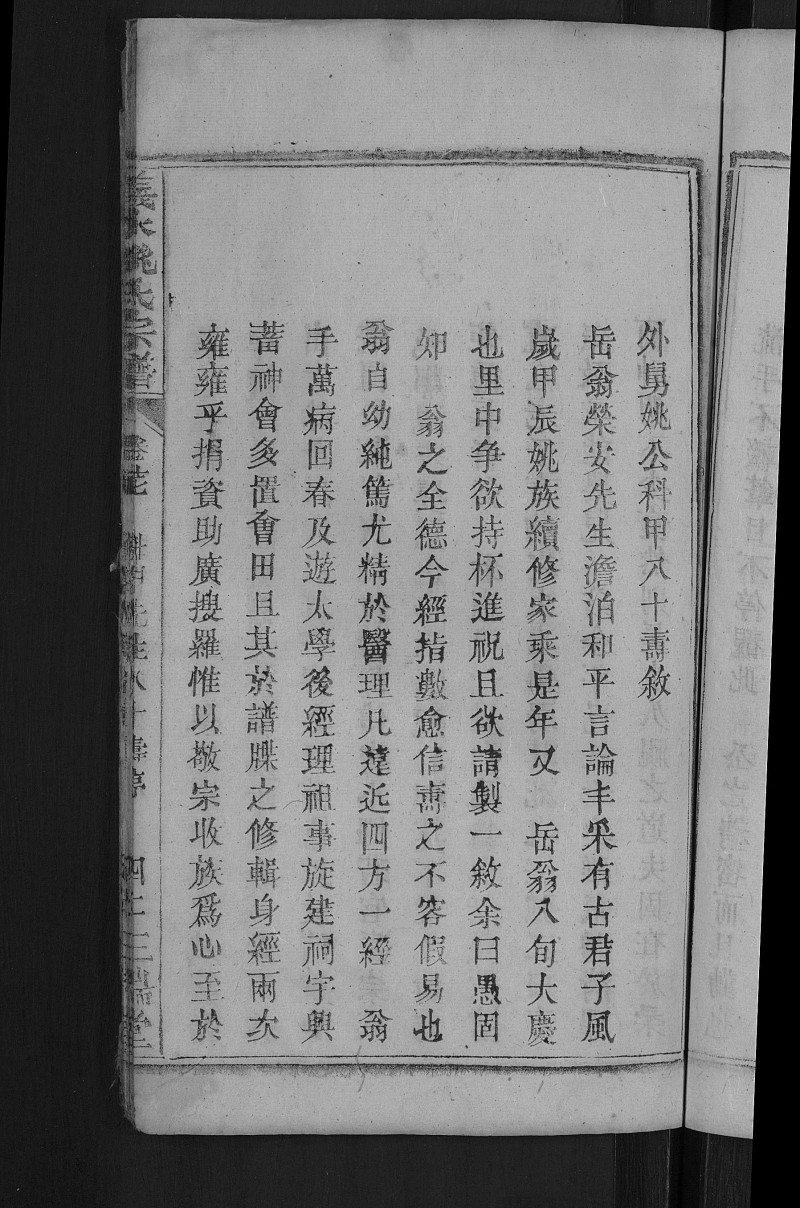 外舅姚公科甲八十壽敘
岳翁榮安先生澹泊和平言論丰采有古君子風
歲甲辰姚族續修家乘是年又 岳翁八旬大慶
也里中争欲持杯進祝且欲請製一敘余曰愚固
知 翁之全德今經指數愈信壽之不容假易也
翁自幼純篤尤精於醫理凡遠近四方一經 翁
手萬病回春及遊太學後經理祖事旋建祠宇興
蓄神會多置會田且其於譜牒之修輯身經兩次
雍雍乎捐資助廣搜羅惟以敬宗收族爲心至於
義水姚氏宗譜 先生八十壽序 三瑞堂